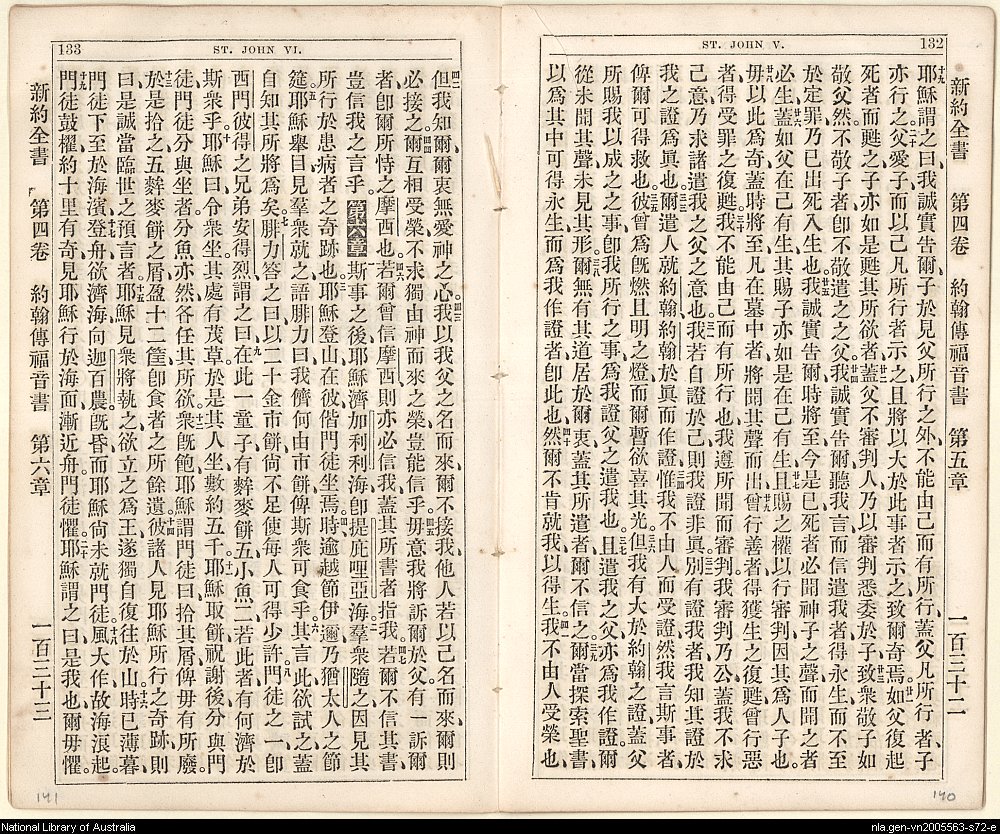 132
ST. JOHN V.
新約全書 第四卷 約翰傳福音書 第五章 一百三十二
十九耶穌謂之曰、我誠實告爾、子於見父所行之外、不能由己而有所行、蓋父凡所行者、子
亦行之。二十父愛子、而以己凡所行者示之、且將以大於此事者示之、致爾奇焉。廿一如父復起
死者而甦之、子亦如是甦其所欲者。廿二蓋父不審判人、乃以審判悉委於子、廿三致衆敬子如
敬父然、不敬子者、卽不敬遣之之父。廿四我誠實告爾、聽我言而信遣我者、得永生、而不至
於定罪、乃已出死入生也。廿五我誠實告爾、時將至、今是已、死者必聞神子之聲、而聞之者
必生。廿六蓋如父在己有生、其賜子亦如是在己有生、廿七且賜之權以行審判、因其爲人子也。
廿八毋以此爲奇、蓋時將至、凡在墓中者、將聞其聲而出、廿九曾行善者、得獲生之復甦、曾行惡
者、得受罪之復甦。三十我不能由己而有所行也、我遵所聞而審判、我審判乃公、蓋我不求
己意、乃求諸遣我之父之意也。三一我若自證於己、則我證非眞。三二別有證我者、我知其證於
我之證爲眞也。三三爾遣人就約翰、約翰於眞而作證。三四惟我不由人而受證、然我言斯事者、
俾爾可得救也。三五彼曾爲旣燃且明之燈、而爾暫欲喜其光。三六但我有大於約翰之證、蓋父
所賜我以成之之事、卽我所行之事、爲我證父之遣我也。三七且遣我之父、爲我作證、爾
從未聞其聲、未見其形。三八爾無有其道居於爾衷、蓋其所遣者、爾不信之。三九爾當探索聖書、
以爲其中可得永生、而爲我作證者、卽此也。四十然爾不肯就我以得生。四一我不由人受榮也、
133
ST. JOHN VI.
四二但我知爾、爾衷無愛神之心。四三我以我父之名而來、爾不接我、他人若以己名而來、爾則
必接之。四四爾互相受榮、不求獨由神而來之榮、豈能信乎。四五毋意我將訴爾於父、有一訴爾
者、卽爾所恃之摩西也。四六若爾曾信摩西、則亦必信我、蓋其所書者指我。四七若爾不信其書、
豈信我之言乎。第六章一斯事之後、耶穌濟加利利海、卽提庇哩亞海。二羣衆隨之、因見其
所行於患病者之奇跡也。三耶穌登山、在彼偕門徒坐焉。四時逾越節伊邇、乃猶太人之節
筵。五耶穌舉目、見羣衆就之、語腓力曰、我儕何由市餅、俾斯衆可食乎。六其言此欲試之、蓋
自知其所將爲矣。七腓力答之曰、以二十金市餅、尙不足使每人可得少許。八門徒之一、卽
西門彼得之兄弟安得烈、謂之曰、九在此一童子、有麰麥餅五、小魚二、若此者有何濟於
斯衆乎。十耶穌曰、令衆坐、其處有茂草、於是其人坐、數約五千。十一耶穌取餅祝謝後、分與門
徒、門徒分與坐者、分魚亦然、各任其所欲。十二衆旣飽、耶穌謂門徒曰、拾其屑、俾毋有所廢。
十三於是拾之、五麰麥餅之屑、盈十二筐、卽食者之所餘遺。十四彼諸人見耶穌所行之奇跡、則
曰、是誠當臨世之預言者。十五耶穌見衆將執之、欲立之爲王、遂獨自復往於山。十六時已薄暮、
門徒下至於海濱、十七登舟、欲濟海向迦百農、旣昏、而耶穌尙未就門徒、十八風大作、故海浪起。
十九門徒鼓櫂約十里有奇、見耶穌行於海、而漸近舟、門徒懼。二十耶穌謂之曰、是我也、爾毋懼。
新約全書 第四卷 約翰傳福音書 第六章 一百三十三
141
140
National Library of Australia
nla.gen-vn2005563-s72-e